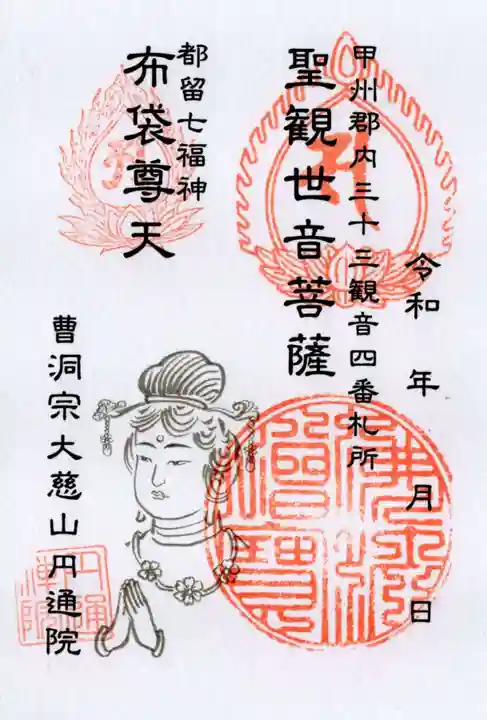 令和　年　月　日
甲州郡内三十三観音四番札所
聖観世音菩薩
都留七福神
布袋尊天
曹洞宗大慈山円通院
佛法僧寳
円通禅院